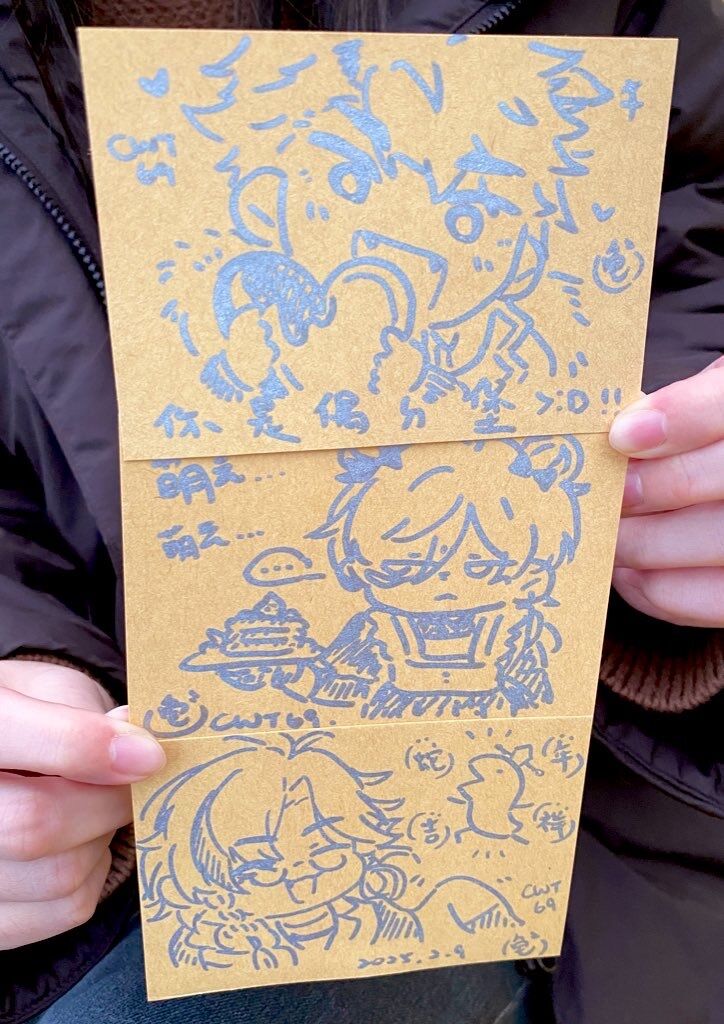 你是偶ㄉ堡
萌え...
萌え...
...
CWT69.
蛇年
吉祥
CWT
69
2025.2.9